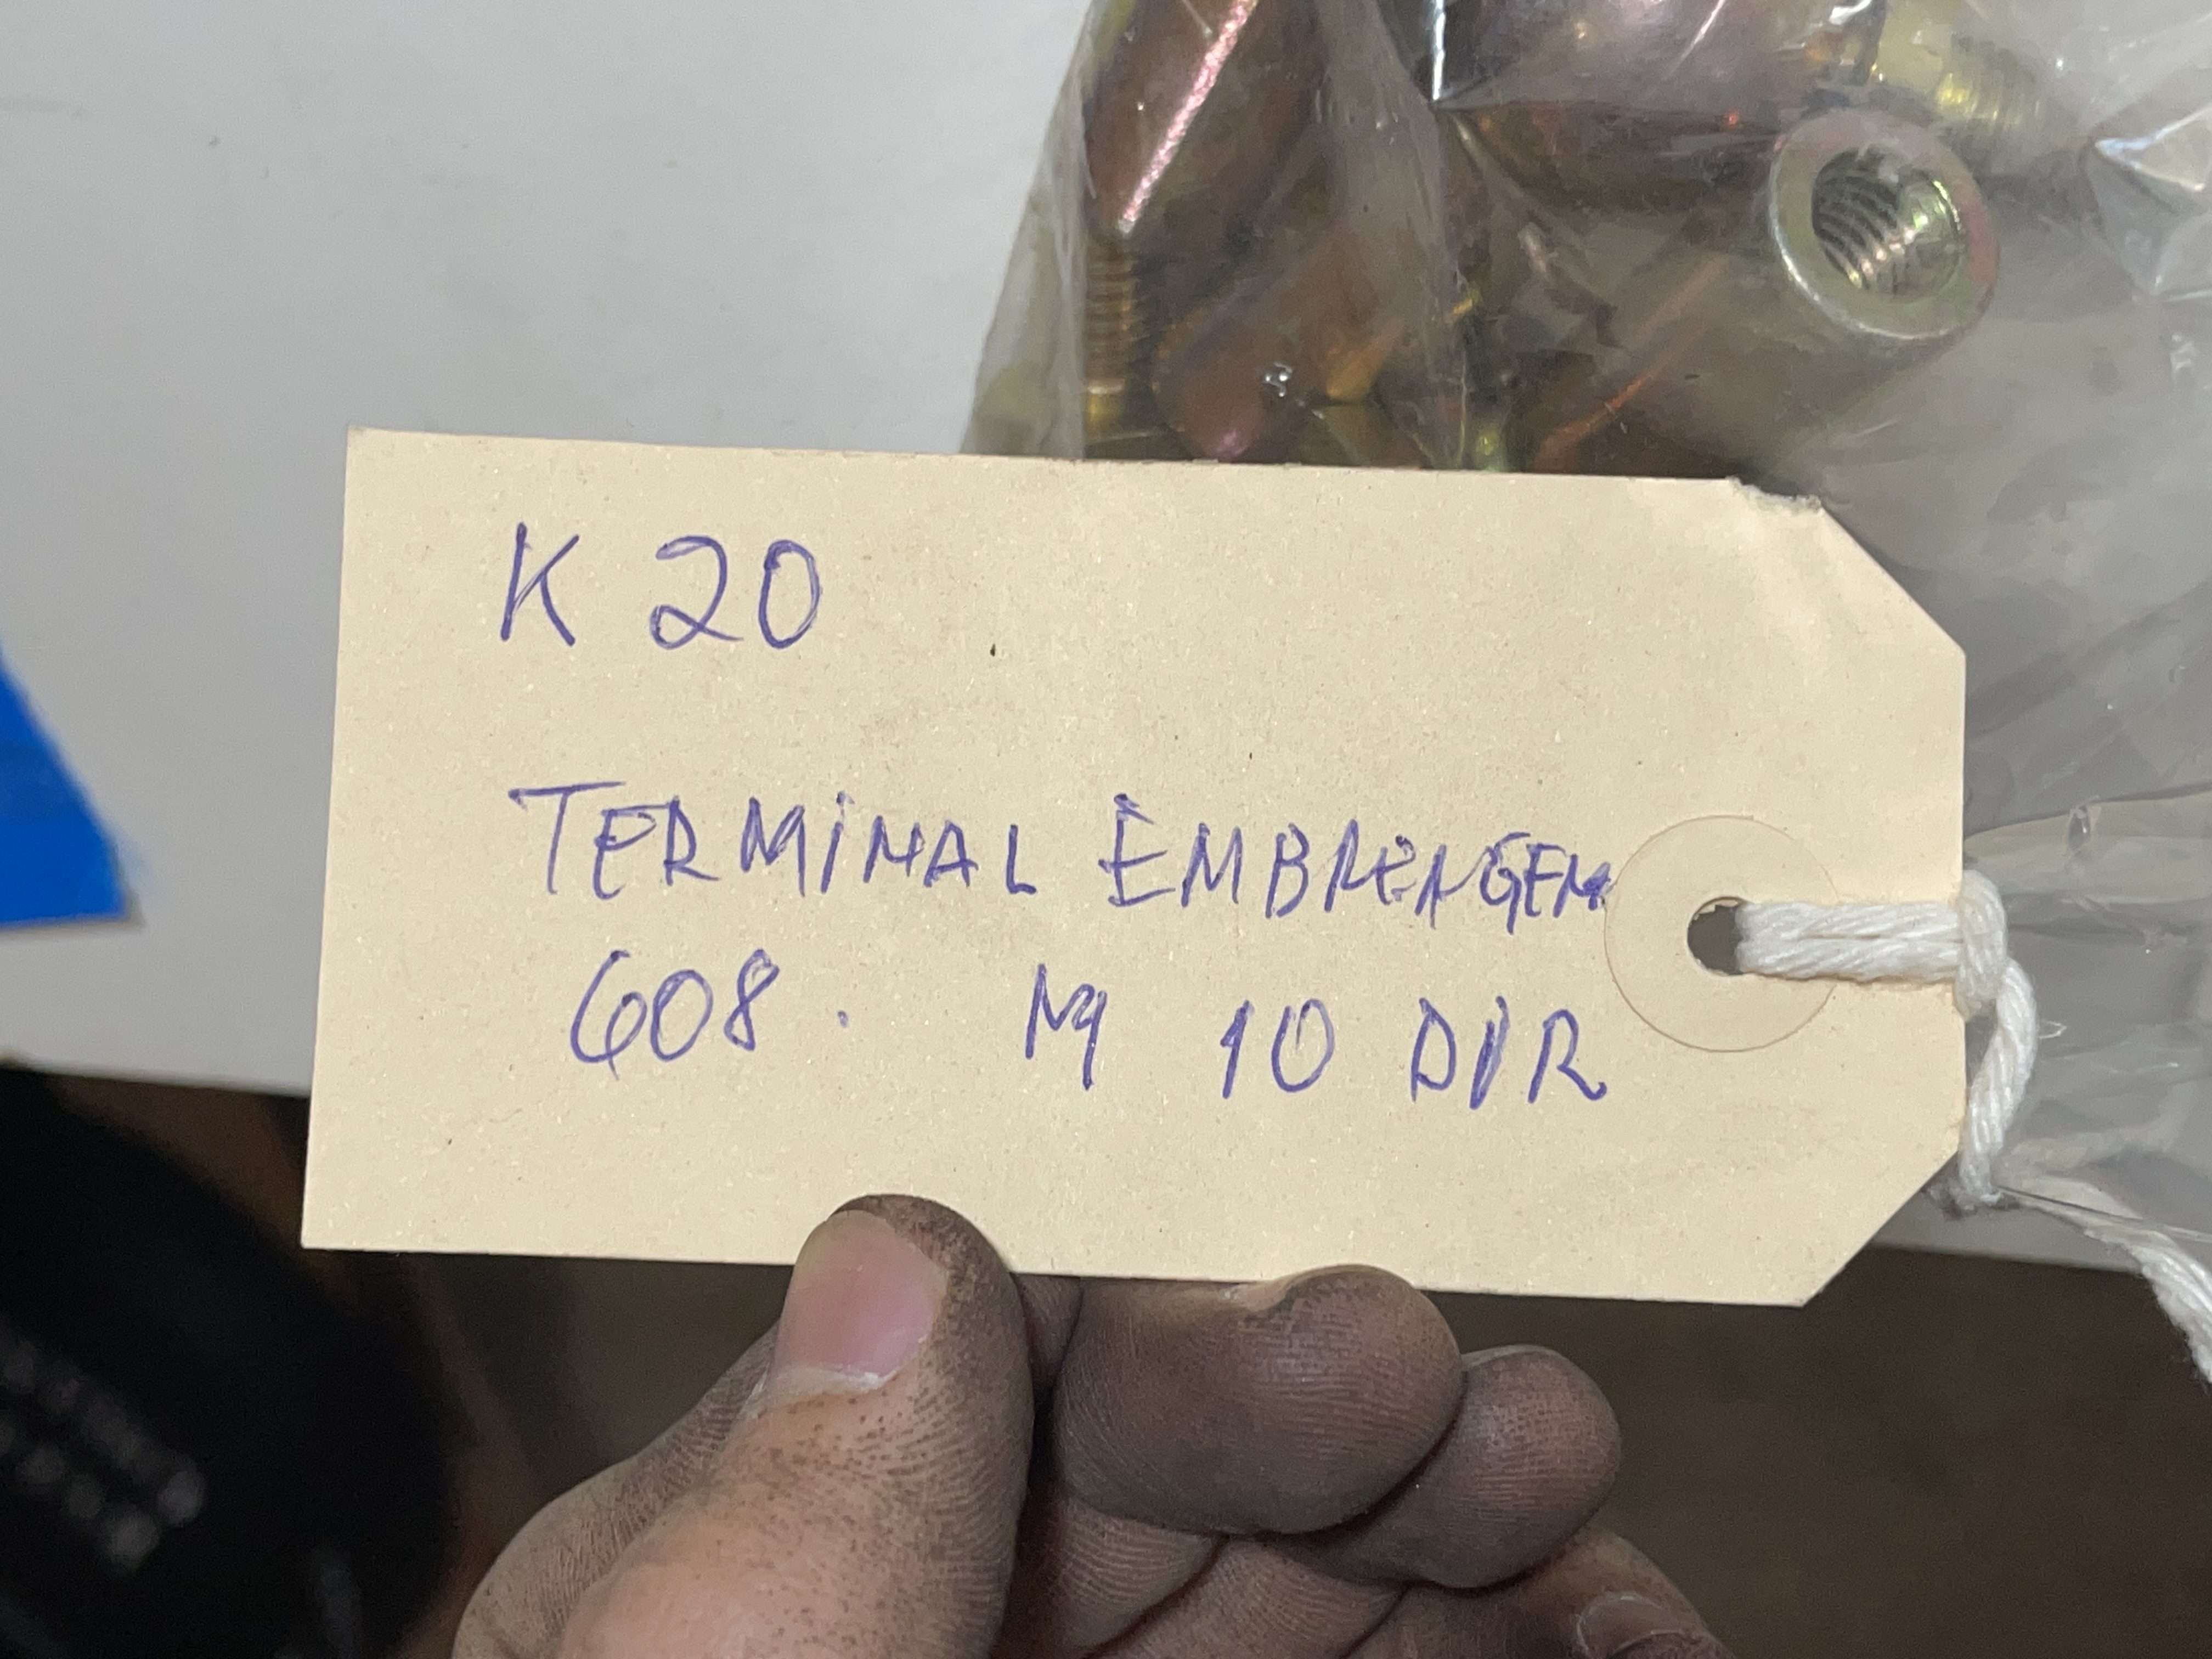 K 20
TERMINAL EMBRAAGEM
608. M 10 DIR